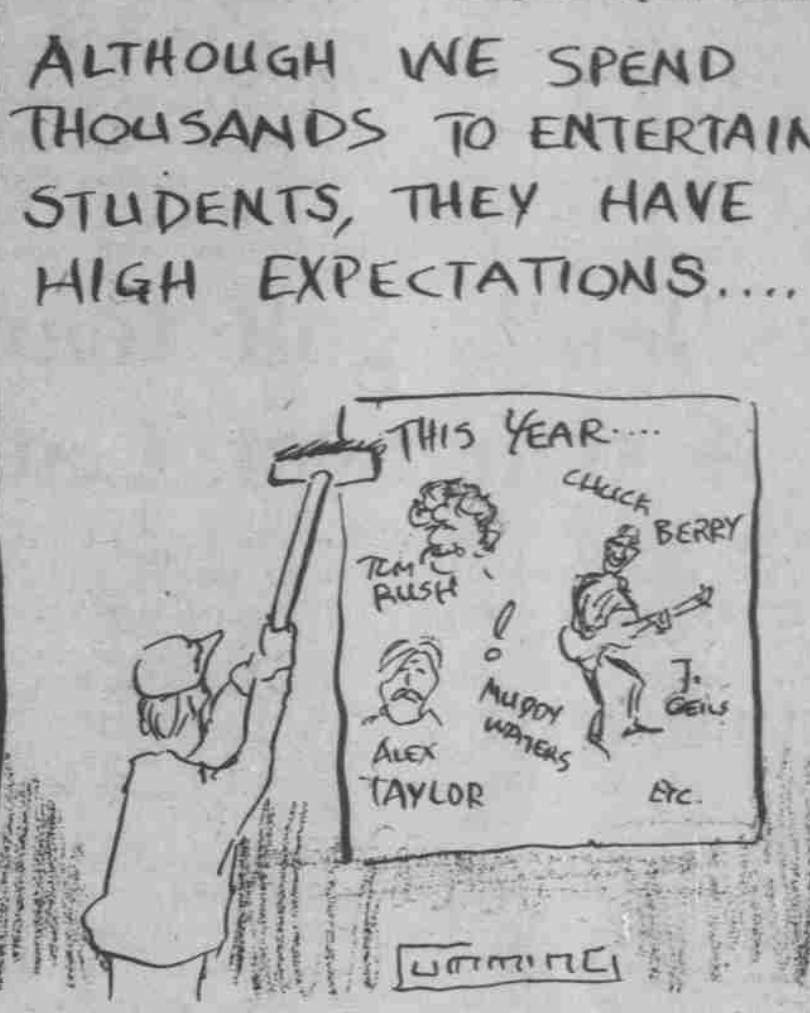 ALTHOUGH WE SPEND
THOUSANDS TO ENTERTAIN
STUDENTS, THEY HAVE
HIGH EXPECTATIONS....
THIS YEAR....
CHUCK
BERRY
TOM
RUSH
!
J.
GEILS
MUDDY
WATERS
ALEX
TAYLOR
ETC.